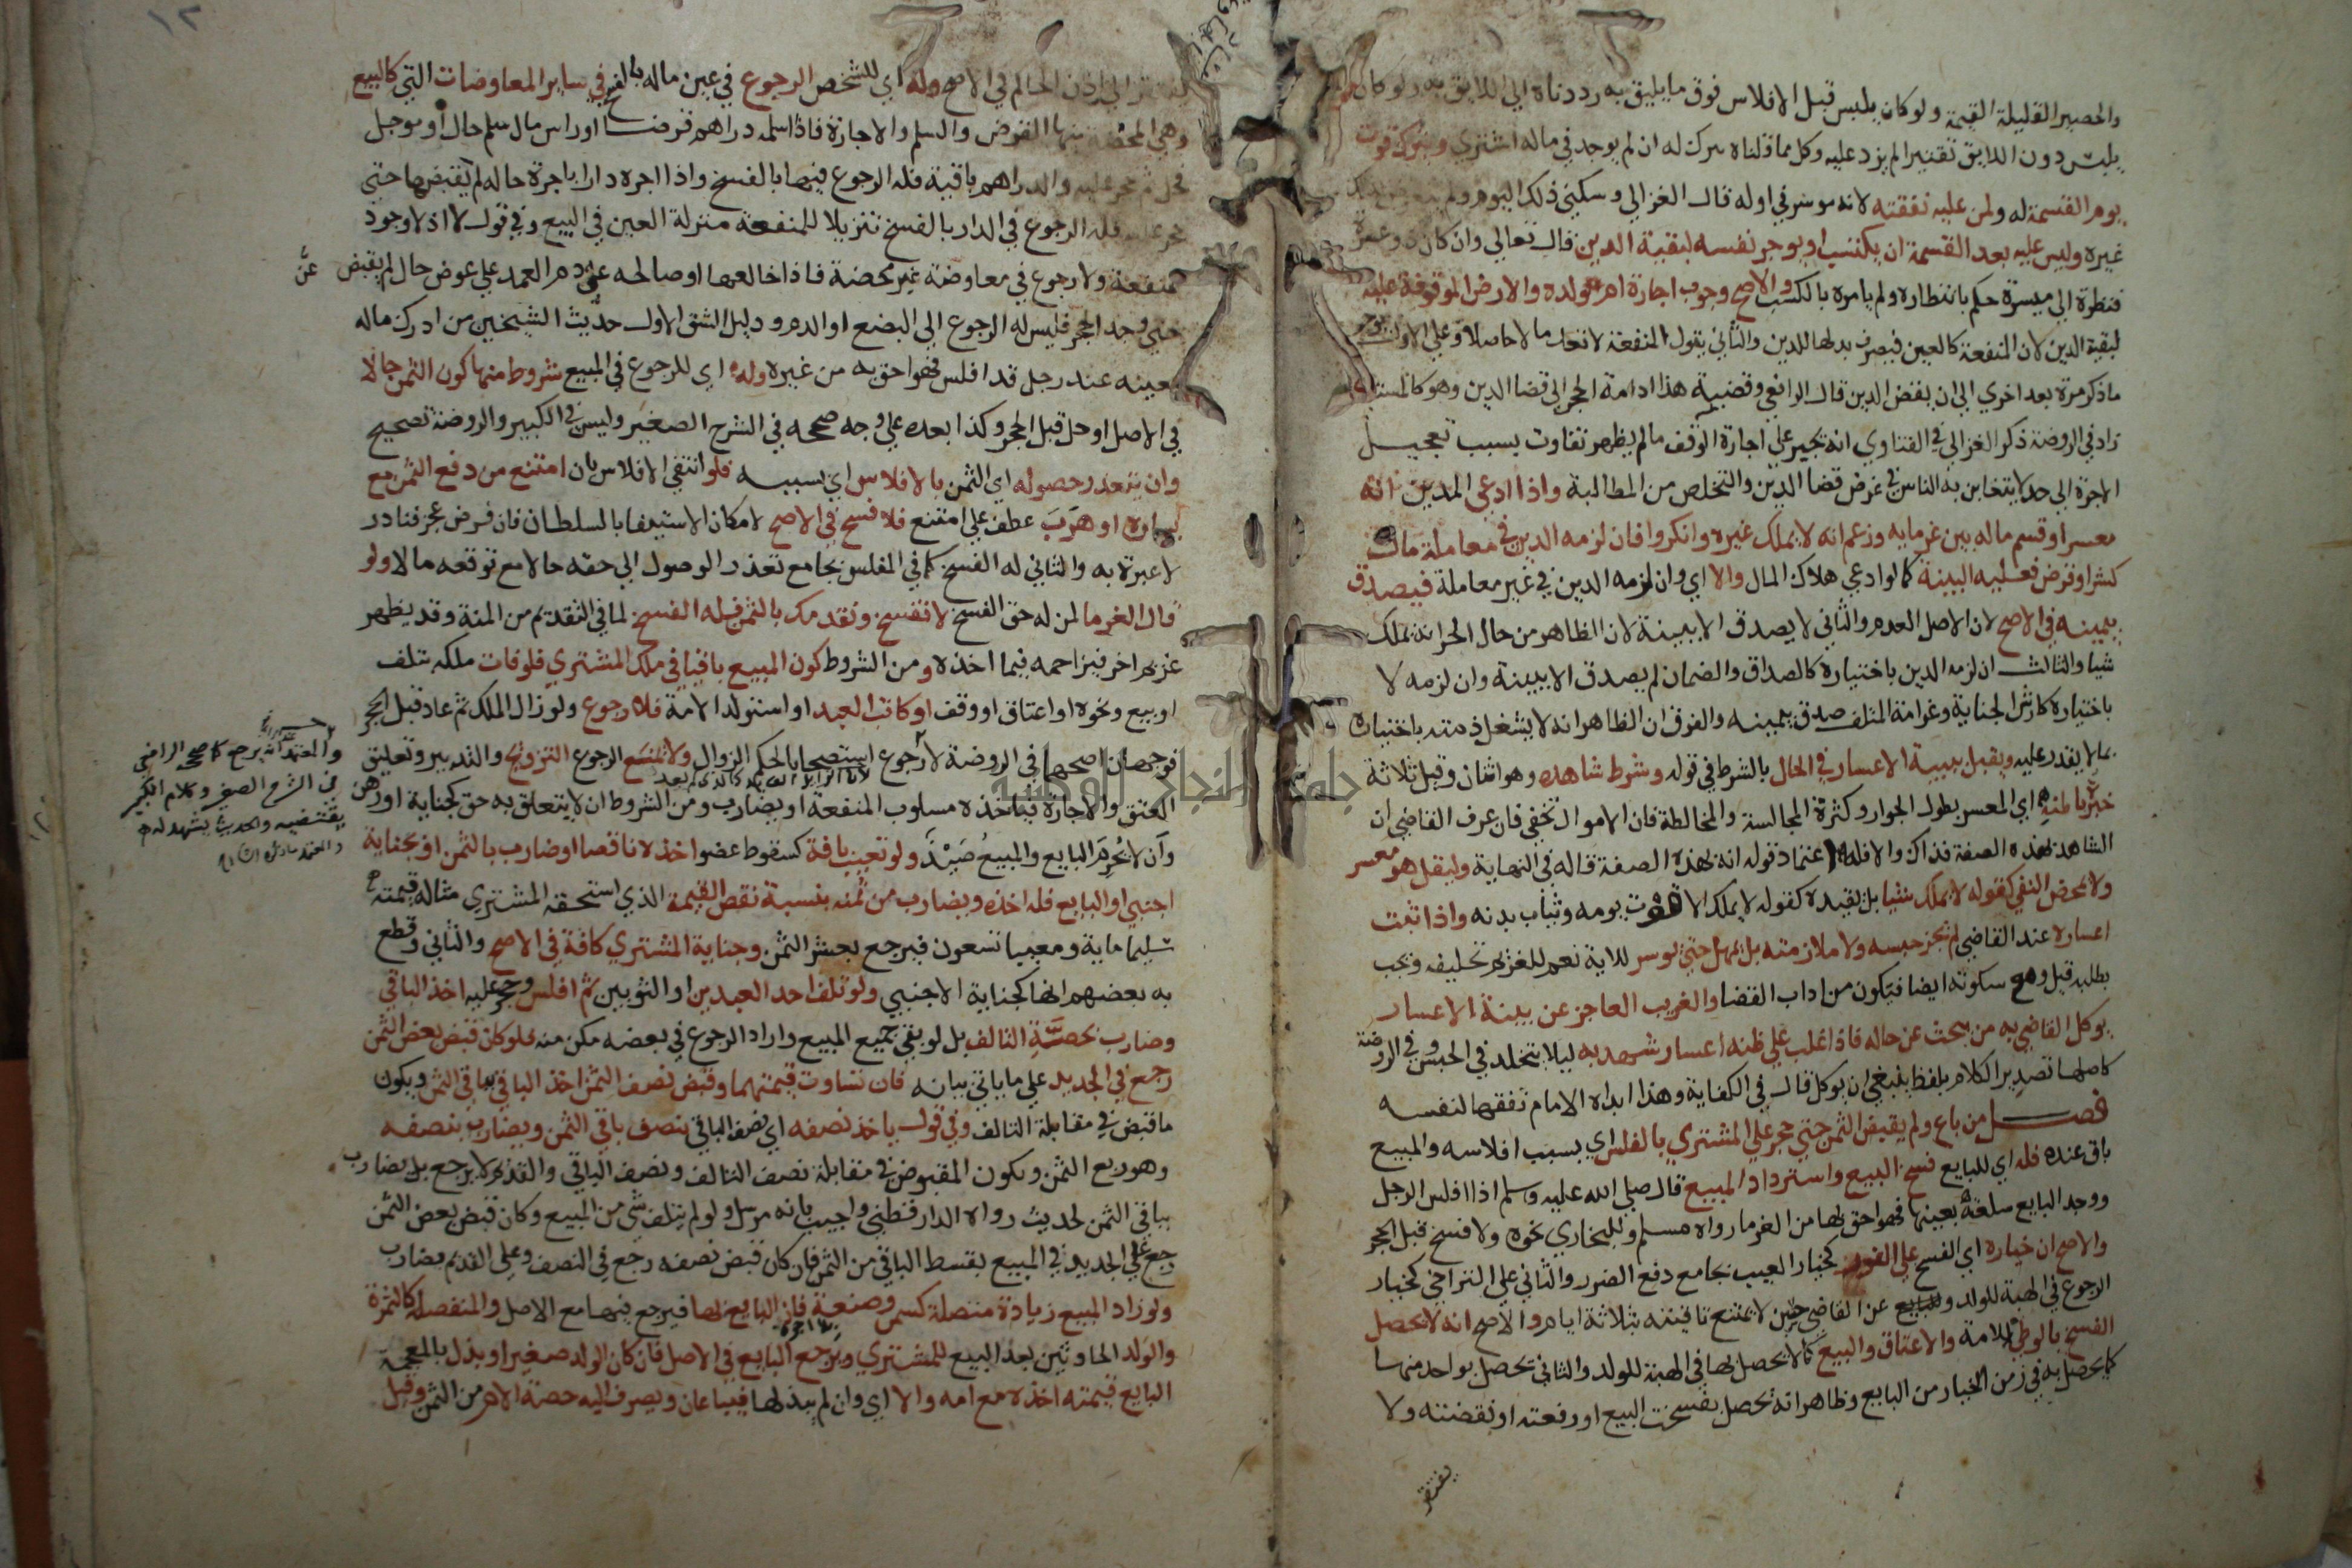 والحصير القليلة القيمة ولو كان يلبس قبل الافلاس فوق ما يليق به رددناه الي اللايق به ولو كان
يلبس دون اللايق تقتيرا لم يزد عليه وكل ما قلناه يترك له ان لم يوجد في ماله اشتري ويترك قوت
يوم القسمة له ولمن عليه نفقته لانه موسر في اوله قال الغزالي وسكني ذلك اليوم ولم
غيره وليس عليه بعد القسمة ان يكتسب او يوجر نفسه لبقية الدين قال تعالي وان كان ذو عسرة
فنظرة الي ميسرة حكم بانتظاره ولم يامره بالكسب والاصح وجوب اجارة ام ولده والارض الموقوفة عليه
لبقية الدين لان المنفعة كالعين فيصرف بدلها للدين والثاني يقول المنفعة لا تعد مالا حاصلا وعلي الاول يوجر
ما ذكر مرة بعد اخري الي ان يقضي الدين قال الرافعي وقضية هذا ادامة الحجر الي قضا الدين وهو كالمستبعد
زاد في الروضة ذكر الغزالي في الفتاوي انه يجبر علي اجارة الوقف ما لم يظهر تفاوت بسبب تعجيل
الاجرة الي حد لا يتغابن به الناس في غرض قضا الدين والتخلص من المطالبة واذا ادعي المدين انه
معسر او قسم ماله بين غرمايه وزعم انه لا يملك غيره وانكروا فان لزمه الدين في معاملة مال
كشرا او قرض فعليه البينة كما لو ادعي هلاك المال والا اي وان لزمه الدين في غير معاملة فيصدق
بيمينه في الاصح لان الاصل العدم والثاني لا يصدق الا ببينة لان الظاهر من حال الحر انه يملك
شيا والثالث ان لزمه الدين باختياره كالصداق والضمان لم يصدق الا ببينة وان لزمه لا
باختياره كارش الجناية وغرامة المتلف صدق بيمينه والفرق ان الظاهر انه لا يشغل ذمته باختياره
بما لا يقدر عليه ويقبل ببينة الاعسار في الحال بالشرط في قوله وشرط شاهده وهو اثنان وقيل ثلاثة
خبرة باطنه اي المعسر بطول الجوار وكثرة المجالسة والمخالطة فان الاموال تخفي فان عرف القاضي ان
الشاهد بهذه الصفة فذاك والا فله اعتماد قوله انه بهذه الصفة قاله في النهاية وليقل هو معسر
ولا يمحض النفي كقوله لا يملك شيا بل يقيده كقوله لا يملك الا قوت يومه وثياب بدنه واذا ثبت
اعساره عند القاضي لم يجز حبسه ولا ملازمته بل يمهل حتي يوسر للاية نعم للغريم تحليفه ويجب
بطلبه قيل ومع سكوته ايضا فيكون من اداب القضا والغريب العاجز عن بينة الاعسار
يوكل القاضي به من يبحث عن حاله فاذا غلب علي ظنه اعساره شهد به ليلا يتخلد في الحبس وفي الروضة
كاصلها تصدير الكلام بلفظ ينبغي ان يوكل قال في الكفاية وهذا ابداه الامام تفقها لنفسه
فصل من باع ولم يقبض الثمن حتي حجر علي المشتري بالفلس اي بسبب افلاسه والمبيع
باق عنده فله اي للبايع فسخ البيع واسترداد المبيع قال صلي الله عليه وسلم اذا افلس الرجل
ووجد البايع سلعته بعينها فهو احق بها من الغرما رواه مسلم وللبخاري نحوه ولا فسخ قبل الحجر
والاصح ان خياره اي الفسخ علي الفور كخيار العيب بجامع دفع الضرر والثاني علي التراخي كخيار
الرجوع في الهبة للولد عن القاضي حسين لا يمتنع تاقيته بثلاثة ايام والاصح انه لا يحصل
الفسخ بالوطي للامة والاعتاق والبيع كما لا تحصل بها في الهبة للولد والثاني تحصل بواحد منها
كما يحصل به في زمن الخيار من البايع وظاهر انه يحصل بفسخت البيع او رفعته او نقضته ولا
يفتقر
١٢
الي اذن الحاكم في الاصح وله اي للشخص الرجوع في عين ماله بالفسخ في ساير المعاوضات التي كالبيع
وهي المحضة منها القرض والسلم والاجارة فاذا سلمه دراهم قرضا او راس مال سلم حال او موجل
فحل ثم حجر عليه والدراهم باقية فله الرجوع فيها بالفسخ واذا اجره دارا باجرة حالة لم يقبضها حتي
حجر عليه فله الرجوع في الدار بالفسخ تنزيلا للمنفعة منزلة العين في البيع وفي قول لا اذ لا وجود
للمنفعة ولا رجوع في معاوضة غير محضة فاذا خالعها او صالحه عن دم العمد علي عوض حال لم يقبض
حتي وجد الحجر فليس له الرجوع الي البضع او الدم ودليل الشق الاول حديث الشيخين من ادرك ماله
بعينه عند رجل قد افلس فهو احق به من غيره وله اي للرجوع في المبيع شروط منها كون الثمن حالا
في الاصل او حل قبل الحجر وكذا بعده علي وجه صححه في الشرح الصغير وليس في الكبير والروضة تصحيح
وان يتعذر حصوله اي الثمن بالافلاس اي بسببه فلو انتفي الافلاس بان امتنع من دفع الثمن مع
يساره او هرب عطف علي امتنع فلا فسخ في الاصح لامكان الاستيفا بالسلطان فان فرض عجز فنادر
لا عبرة به والثاني له الفسخ كما في المفلس بجامع تعذر الوصول الي حقه حالا مع توقعه مالا ولو
قال الغرما لمن له حق الفسخ لا تفسخ ونقدمك بالثمن فله الفسخ لما في التقديم من المنة وقد يظهر
غريم اخر فيزاحمه فيما اخذه ومن الشروط كون المبيع باقيا في ملك المشتري فلو فات ملكه بتلف
او بيع ونحوه او اعتاق او وقف او كاتب العبد او استولد الامة فلا رجوع ولو زال الملك ثم عاد قبل الحجر
فوجهان اصحهما في الروضة لا رجوع استصحابا لحكم الزوال ولا يمنع الرجوع التزويج والتدبير وتعليق
العتق والاجارة فياخذه مسلوب المنفعة او يضارب ومن الشروط ان لا يتعلق به حق كجناية او رهن
وان لا يحرم البايع والمبيع صيد ولو تعيب بافة كسقوط عضو اخذه ناقصا او ضارب بالثمن او بجناية
اجنبي او البايع فله اخذه ويضارب من ثمنه بنسبة نقص القيمة الذي استحقه المشتري مثاله قيمته
سليما ماية ومعيبا تسعون فيرجع بعشر الثمن وجناية المشتري كافة في الاصح والثاني وقطع
به بعضهم انها كجناية الاجنبي ولو تلف احد العبدين او الثوبين ثم افلس وحجر عليه اخذ الباقي
وضارب بحصة التالف بل لو بقي جميع المبيع واراد الرجوع في بعضه مكن منه فلو كان قبض بعض الثمن
رجع في الجديد علي ما ياتي بيانه فان تساوت قيمتهما وقبض نصف الثمن اخذ الباقي بباقي الثمن ويكون
ما قبض في مقابلة التالف وفي قول ياخذ نصفه اي نصف الباقي بنصف باقي الثمن ويضارب بنصفه
وهو ربع الثمن ويكون المقبوض في مقابلة نصف التالف ونصف الباقي والقديم لا يرجع بل يضارب
بباقي الثمن لحديث رواه الدارقطني واجيب بانه مرسل ولو لم يتلف شي من المبيع وكان قبض بعض الثمن
رجع علي الجديد في المبيع بقسط الباقي من الثمن فان كان قبض نصفه رجع في النصف وعلي القديم يضارب
ولو زاد المبيع زيادة متصلة كسمن وصنعة فاز البايع بها فيرجع فيها مع الاصل والمنفصلة كالثمرة
والولد الحادثين بعد البيع للمشتري ويرجع البايع في الاصل فان كان الولد صغيرا وبذل بالمعجمة
البايع قيمته اخذه مع امه والا اي وان لم يبذلها فيباعان ويصرف اليه حصة الام من الثمن وقيل
والمعتمد انه يرجع كما صححه الرافعي
في الشرح الصغير وكلام الكبير
يقتضيه والحديث يشهد له
جامعة النجاح الوطنية